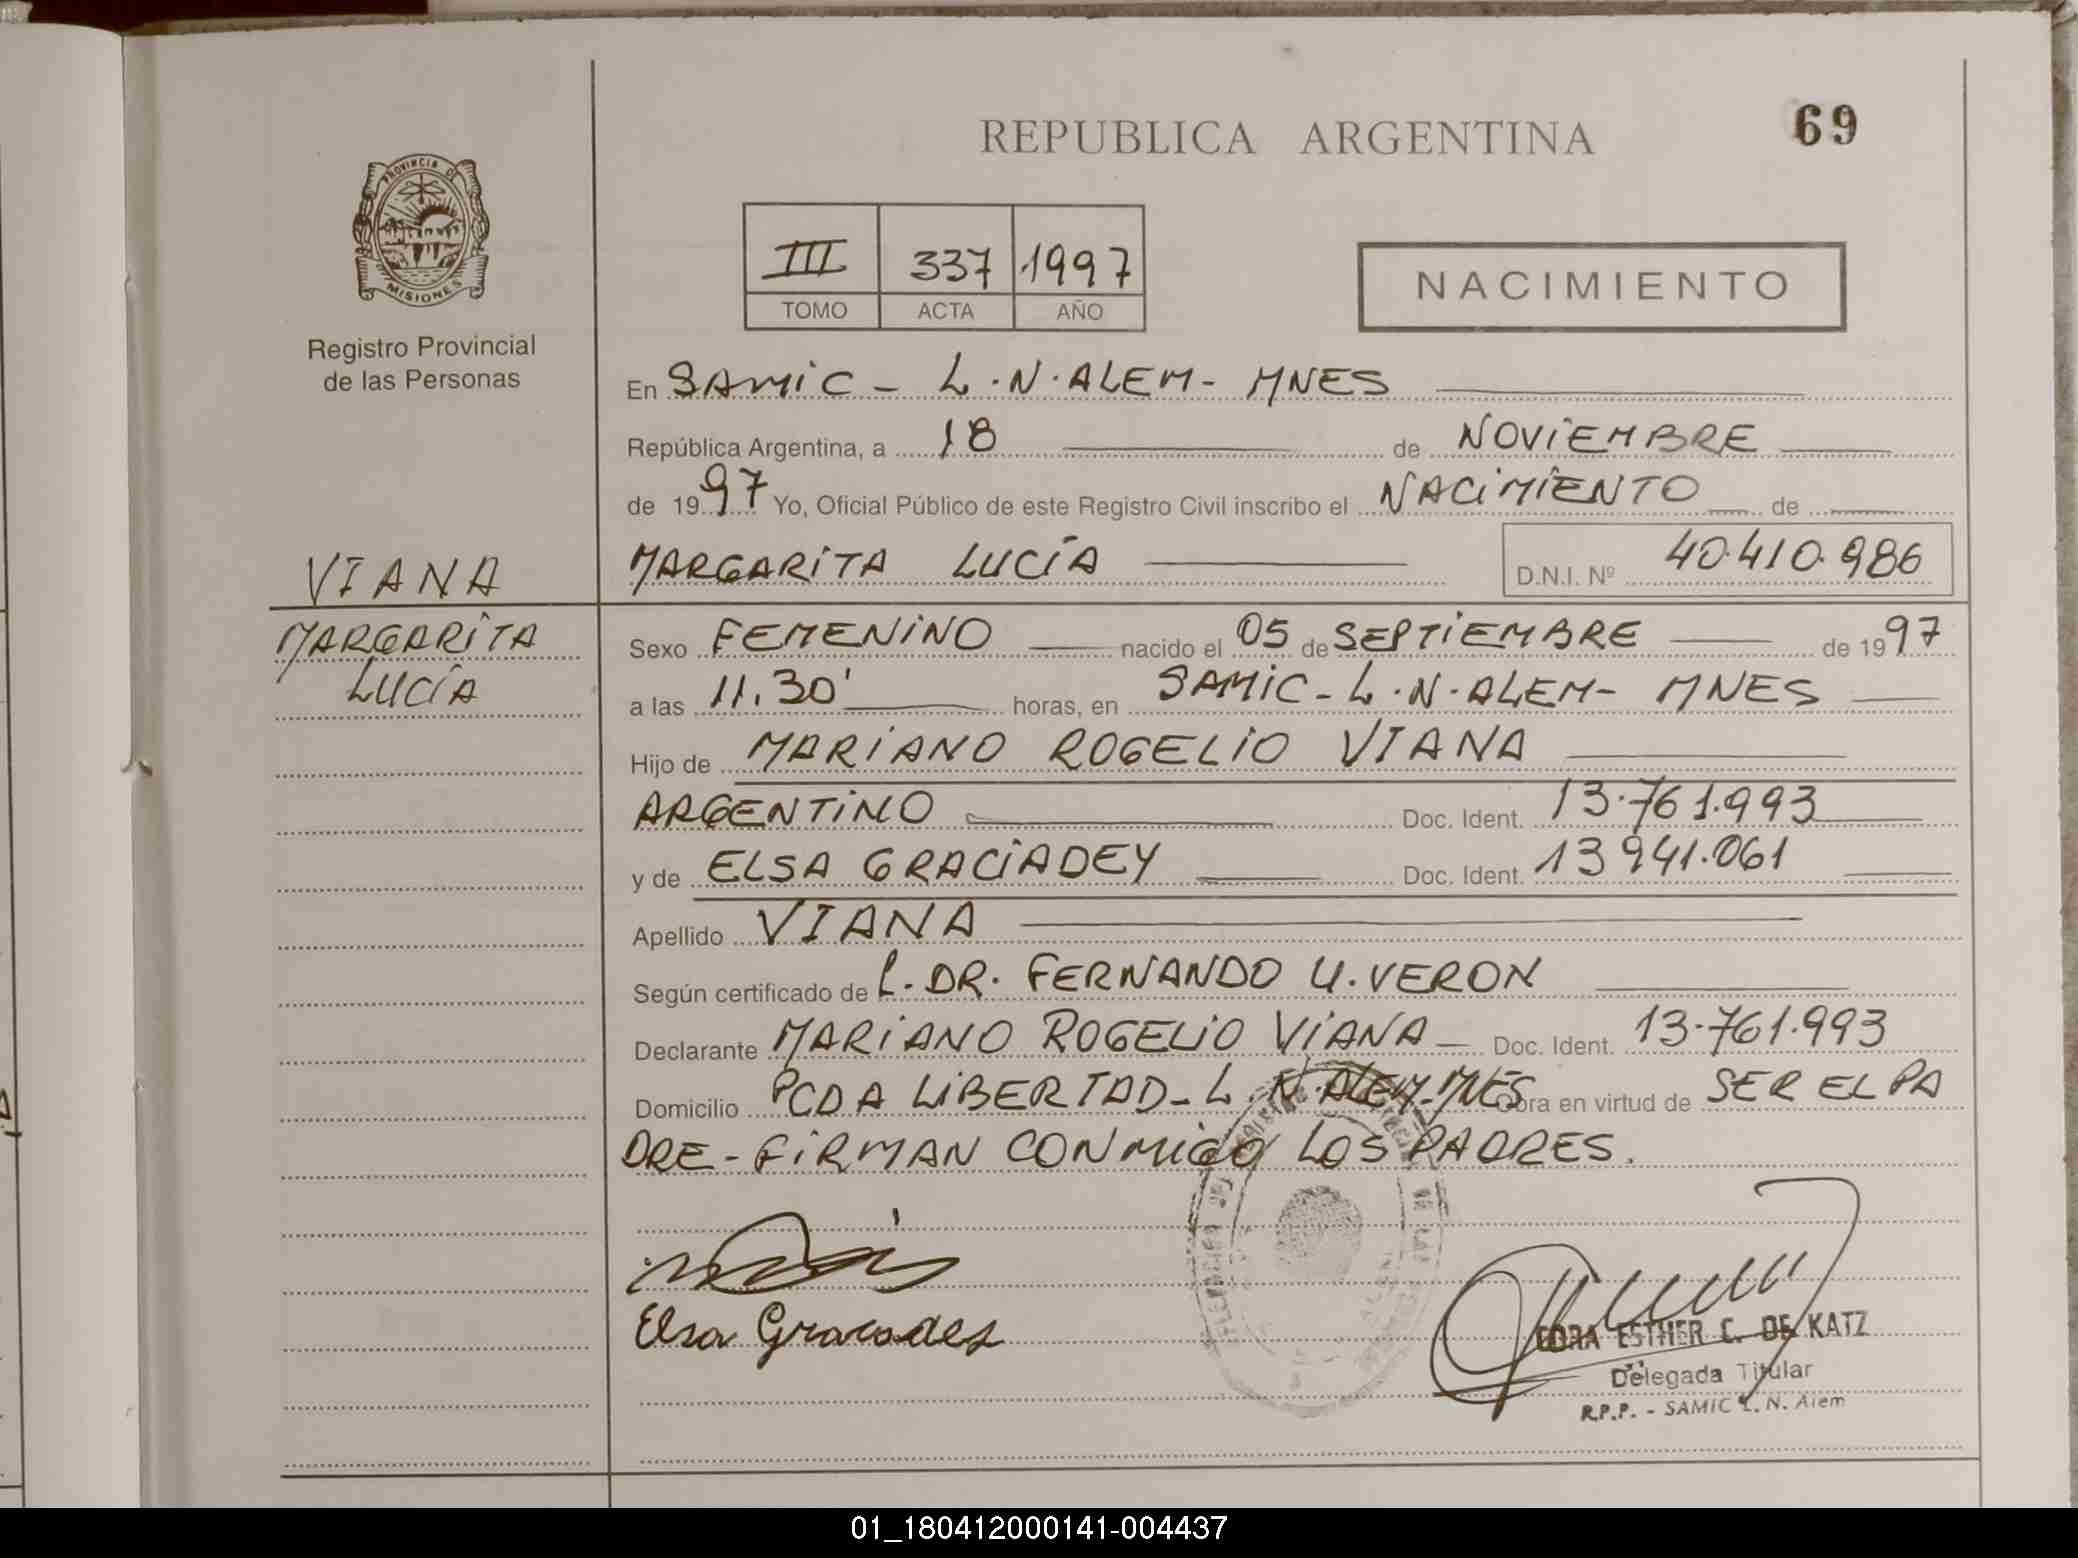 REPUBLICA ARGENTINA
69
PROVINCIA DE
MISIONES
Registro Provincial
de las Personas
III 337 1997
TOMO ACTA AÑO
NACIMIENTO
En SAMIC - L.N.ALEM - MNES
República Argentina, a 18 de NOVIEMBRE
de 1997 Yo, Oficial Público de este Registro Civil inscribo el NACIMIENTO de
VIANA
MARGARITA LUCÍA D.N.I. Nº 40.410.986
MARGARITA
LUCÍA
Sexo FEMENINO nacido el 05 de SEPTIEMBRE de 1997
a las 11.30' horas, en SAMIC - L.N.ALEM - MNES
Hijo de MARIANO ROGELIO VIANA
ARGENTINO Doc. Ident. 13.761.993
y de ELSA GRACIADEY Doc. Ident. 13941.061
Apellido VIANA
Según certificado de L. DR. FERNANDO U. VERON
Declarante MARIANO ROGELIO VIANA - Doc. Ident. 13.761.993
Domicilio PCDA LIBERTAD - L.N.ALEM. MNES Obra en virtud de SER EL PA
DRE - FIRMAN CONMIGO LOS PADRES.
Elsa
ESTHER C. DE KATZ
Delegada Titular
R.P.P. - SAMIC L. N. Alem
01_180412000141-004437